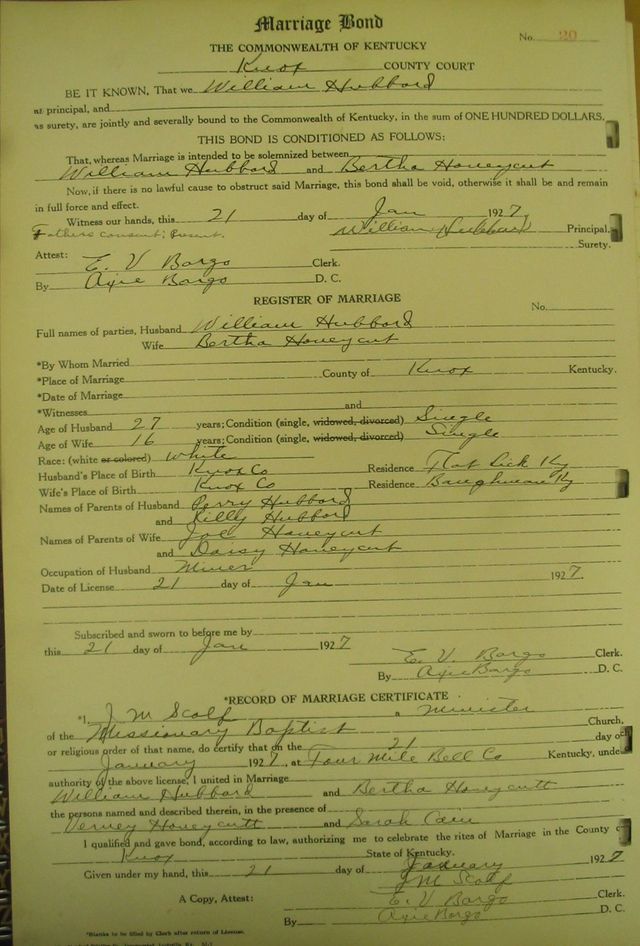 Marriage Bond
No. 20
THE COMMONWEALTH OF KENTUCKY
Knox COUNTY COURT
BE IT KNOWN, That we William Hubbard
as principal, and
as surety, are jointly and severally bound to the Commonwealth of Kentucky, in the sum of ONE HUNDRED DOLLARS.
THIS BOND IS CONDITIONED AS FOLLOWS:
That, whereas Marriage is intended to be solemnized between
William Hubbard and Bertha Honeycut
Now, if there is no lawful cause to obstruct said Marriage, this bond shall be void, otherwise it shall be and remain
in full force and effect.
Witness our hands, this 21 day of Jan 1927.
Fathers consent; present. William Hubbard Principal.
Surety.
Attest: E. V Bargo Clerk.
By Axie Bargo D. C.
REGISTER OF MARRIAGE
No.
Full names of parties, Husband William Hubbard
Wife Bertha Honeycut
*By Whom Married
*Place of Marriage County of Knox Kentucky.
*Date of Marriage
*Witnesses and
Age of Husband 27 years; Condition (single, widowed, divorced) Single
Age of Wife 16 years; Condition (single, widowed, divorced) Single
Race: (white or colored) White
Husband's Place of Birth Knox Co Residence Flat Lick Ky
Wife's Place of Birth Knox Co Residence Baughman Ky
Names of Parents of Husband Perry Hubbard
and Lilly Hubbard
Names of Parents of Wife Joe Honeycut
and Daisy Honeycut
Occupation of Husband Miner
Date of License 21 day of Jan 1927.
Subscribed and sworn to before me by
this 21 day of Jan 1927
E. V. Bargo Clerk.
By Axie Bargo D. C.
*RECORD OF MARRIAGE CERTIFICATE
*I, J M Scalf a Minister
of the Missionary Baptist Church,
or religious order of that name, do certify that on the 21 day of
January 1927, at Four Mile Bell Co Kentucky, unde
authority of the above license, I united in Marriage
William Hubbard and Bertha Honeycutt
the persons named and described therein, in the presence of
Verney Honeycutt and Sarah Cain
I qualified and gave bond, according to law, authorizing me to celebrate the rites of Marriage in the County
Knox State of Kentucky.
Given under my hand, this 21 day of January 1927
J M Scalf
A Copy, Attest: E. V Bargo Clerk.
By Axie Bargo D. C.
*Blanks to be filled by Clerk after return of License.